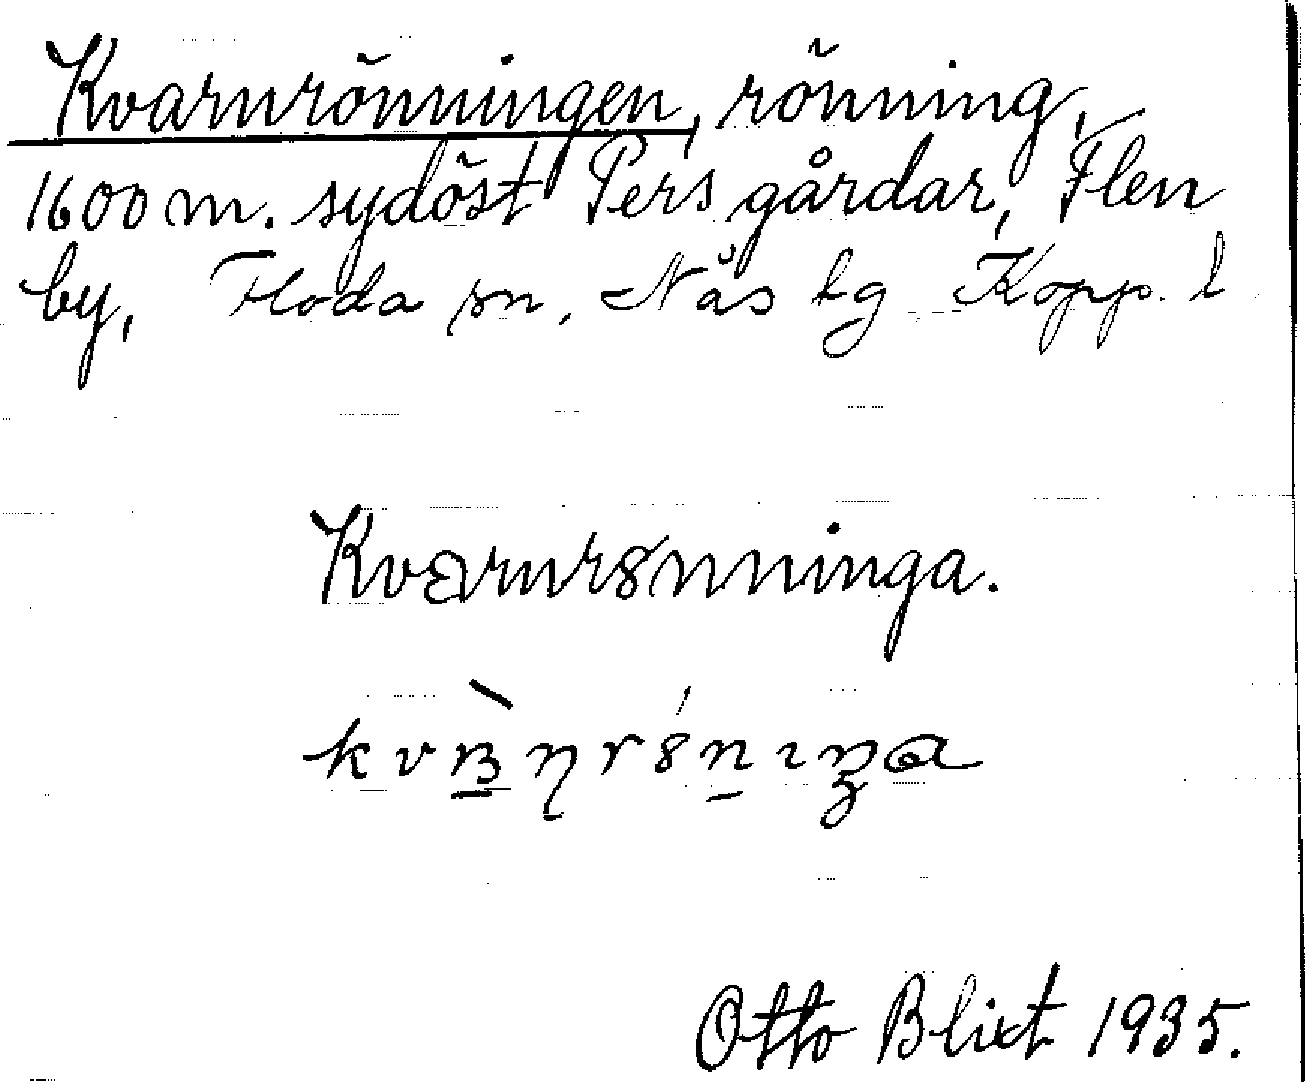 Kvarnrönningen, rönning,
1600 m. sydöst Pers gårdar, Flen
by, Floda sn, Nås hg Kopp. l
Kvarnrȣnninga.
Otto Blixt 1935.